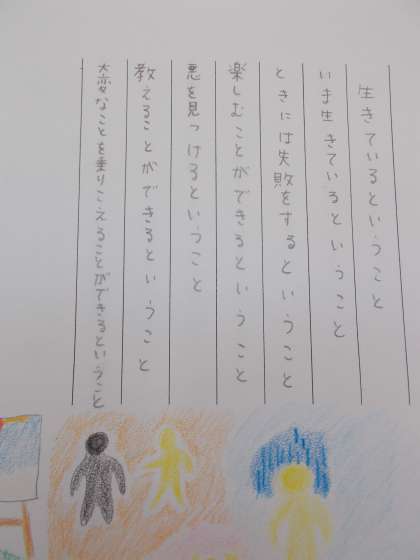 生きているということ
いま生きているということ
ときには失敗をするということ
楽しむことができるということ
悪を見つけるということ
教えることができるということ
大変なことを乗りこえることができるということ